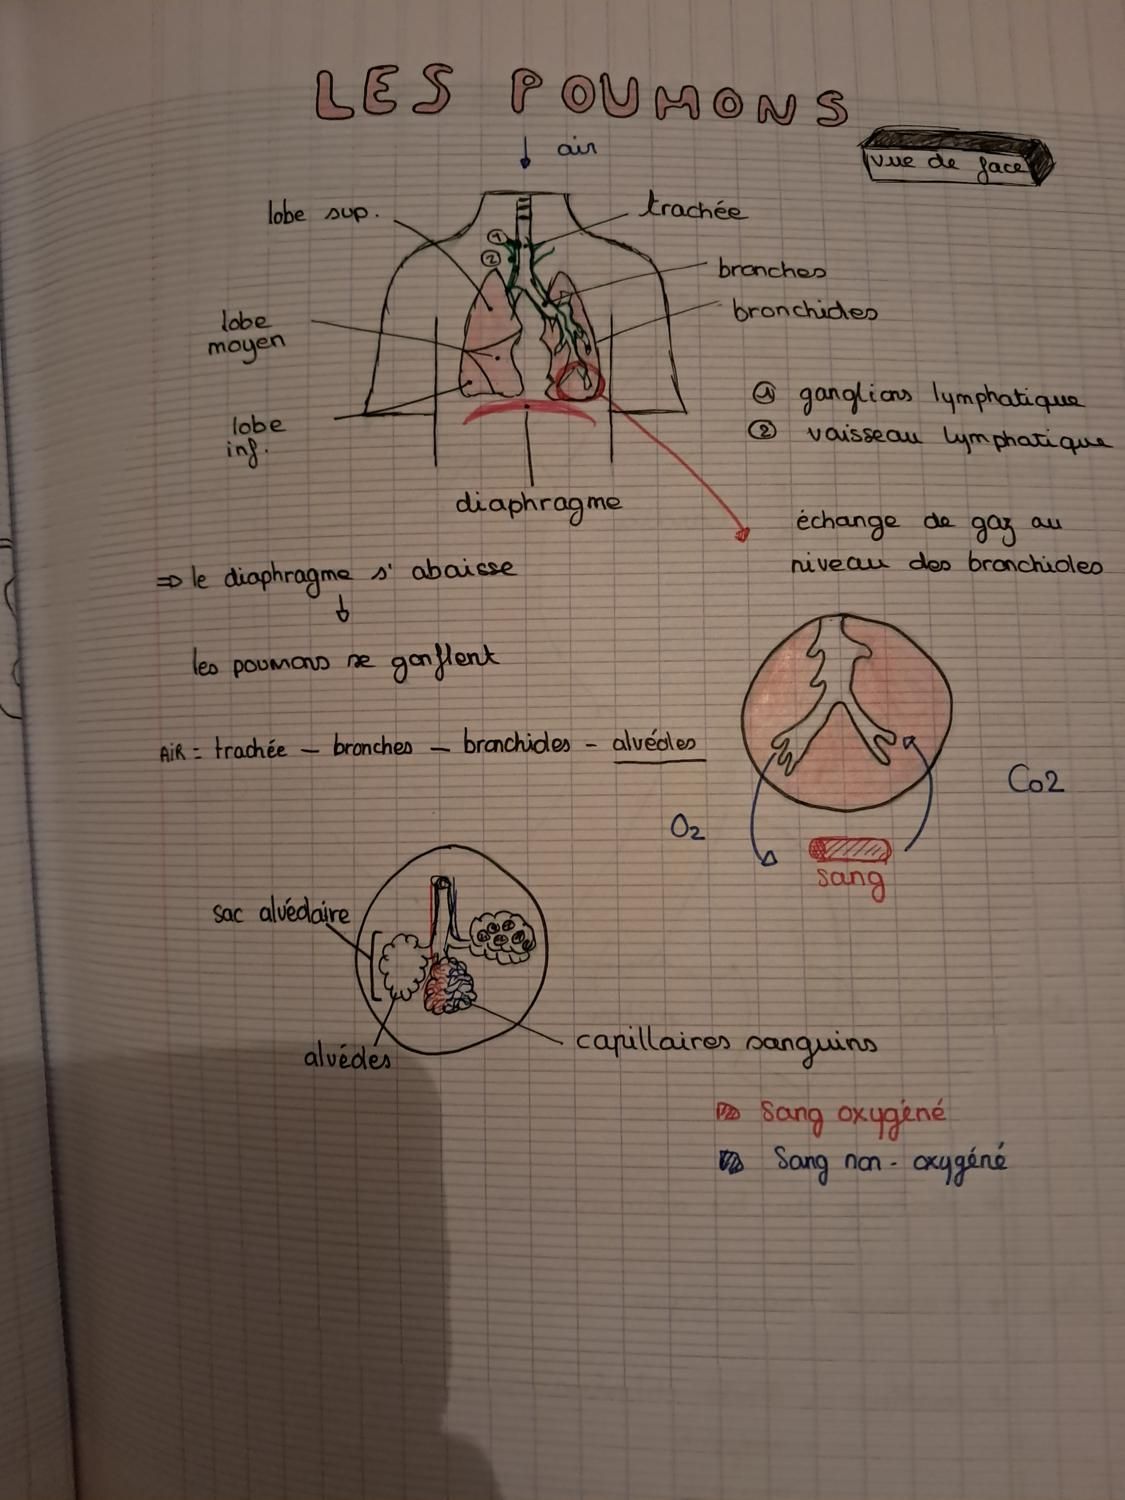 LES POUMONS
air
vue de face
lobe sup.
trachée
①
②
bronches
bronchioles
lobe
moyen
① ganglions lymphatique
② vaisseau lymphatique
lobe
inf.
diaphragme
échange de gaz au
niveau des bronchioles
⇒ le diaphragme s'abaisse
↓
les poumons se gonflent
AiR = trachée – bronches – bronchioles – alvéoles
Co2
O2
sang
sac alvéolaire
alvéoles
capillaires sanguins
Sang oxygéné
Sang non-oxygéné